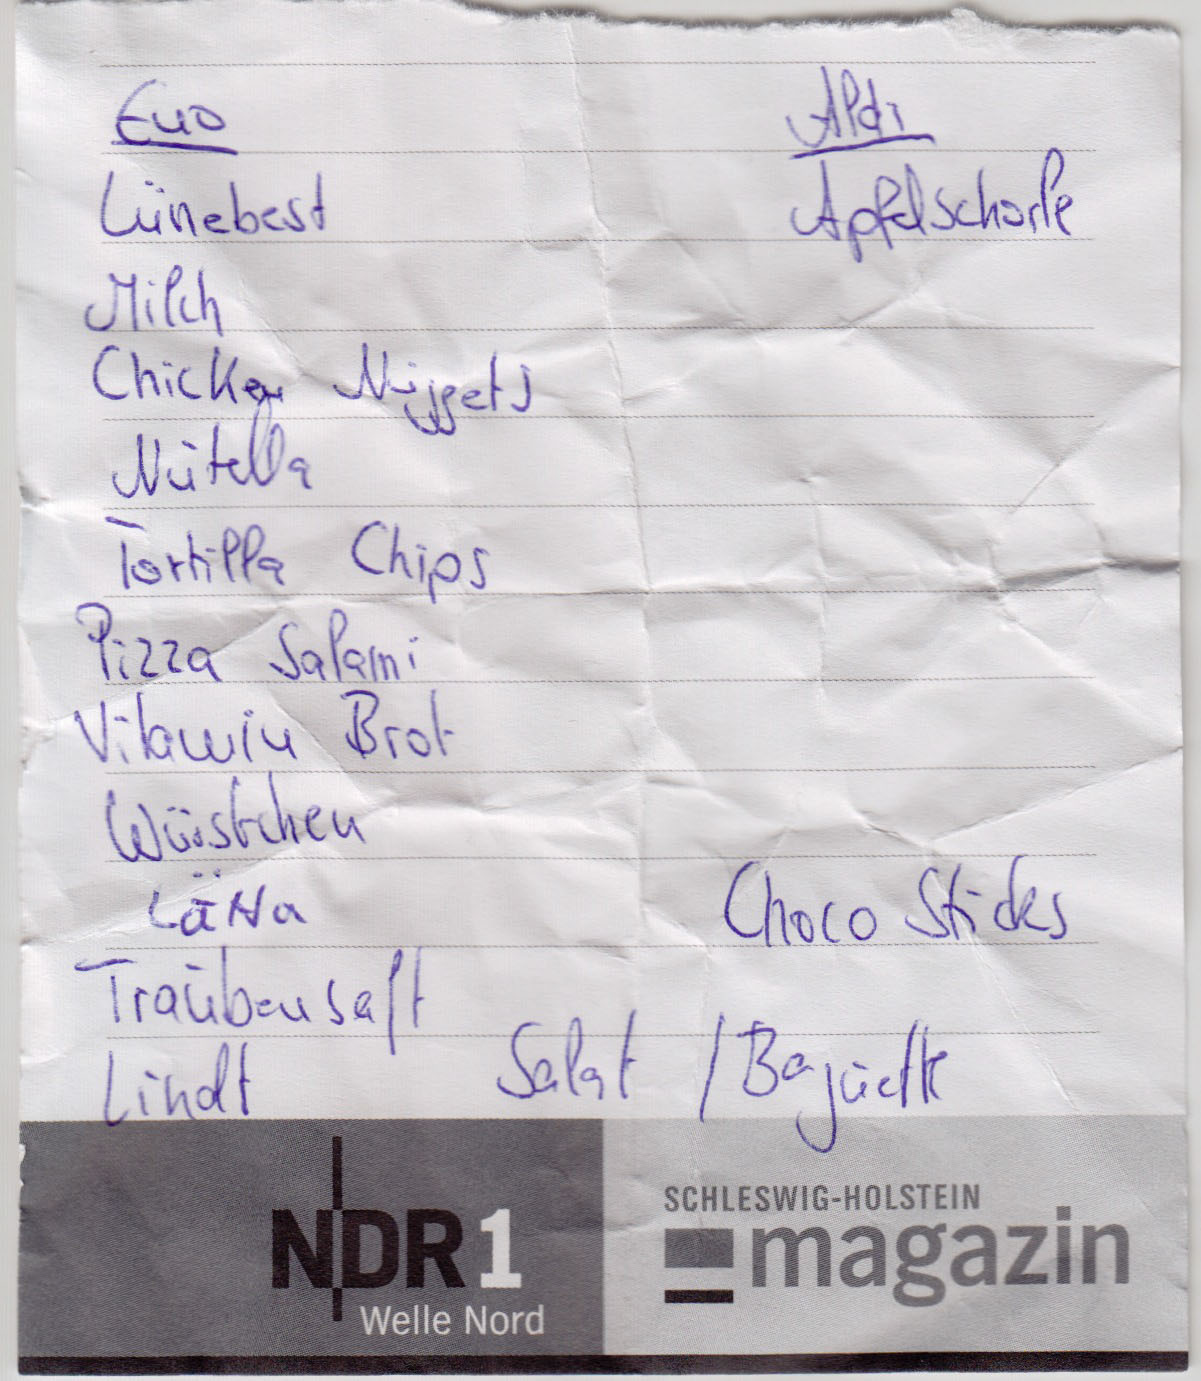 Euo
Aldi
Lünebest
Apfelschorle
Milch
Chicken Nuggets
Nutella
Tortilla Chips
Pizza Salami
Vitamin Brot
Würstchen
Lätta
Choco Sticks
Traubensaft
Lindt
Salat / Baguette
NDR 1
Welle Nord
SCHLESWIG-HOLSTEIN
magazin